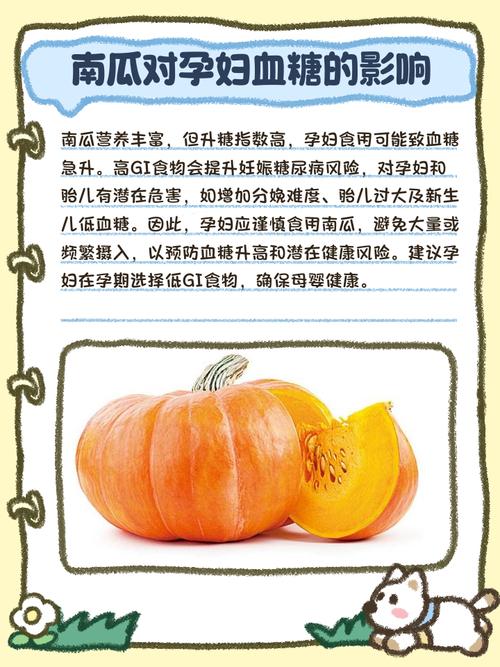 南瓜对孕妇血糖的影响
南瓜营养丰富，但升糖指数高，孕妇食用可能致血糖
急升。高GI食物会提升妊娠糖尿病风险，对孕妇和
胎儿有潜在危害，如增加分娩难度、胎儿过大及新生
儿低血糖。因此，孕妇应谨慎食用南瓜，避免大量或
频繁摄入，以预防血糖升高和潜在健康风险。建议孕
妇在孕期选择低GI食物，确保母婴健康。